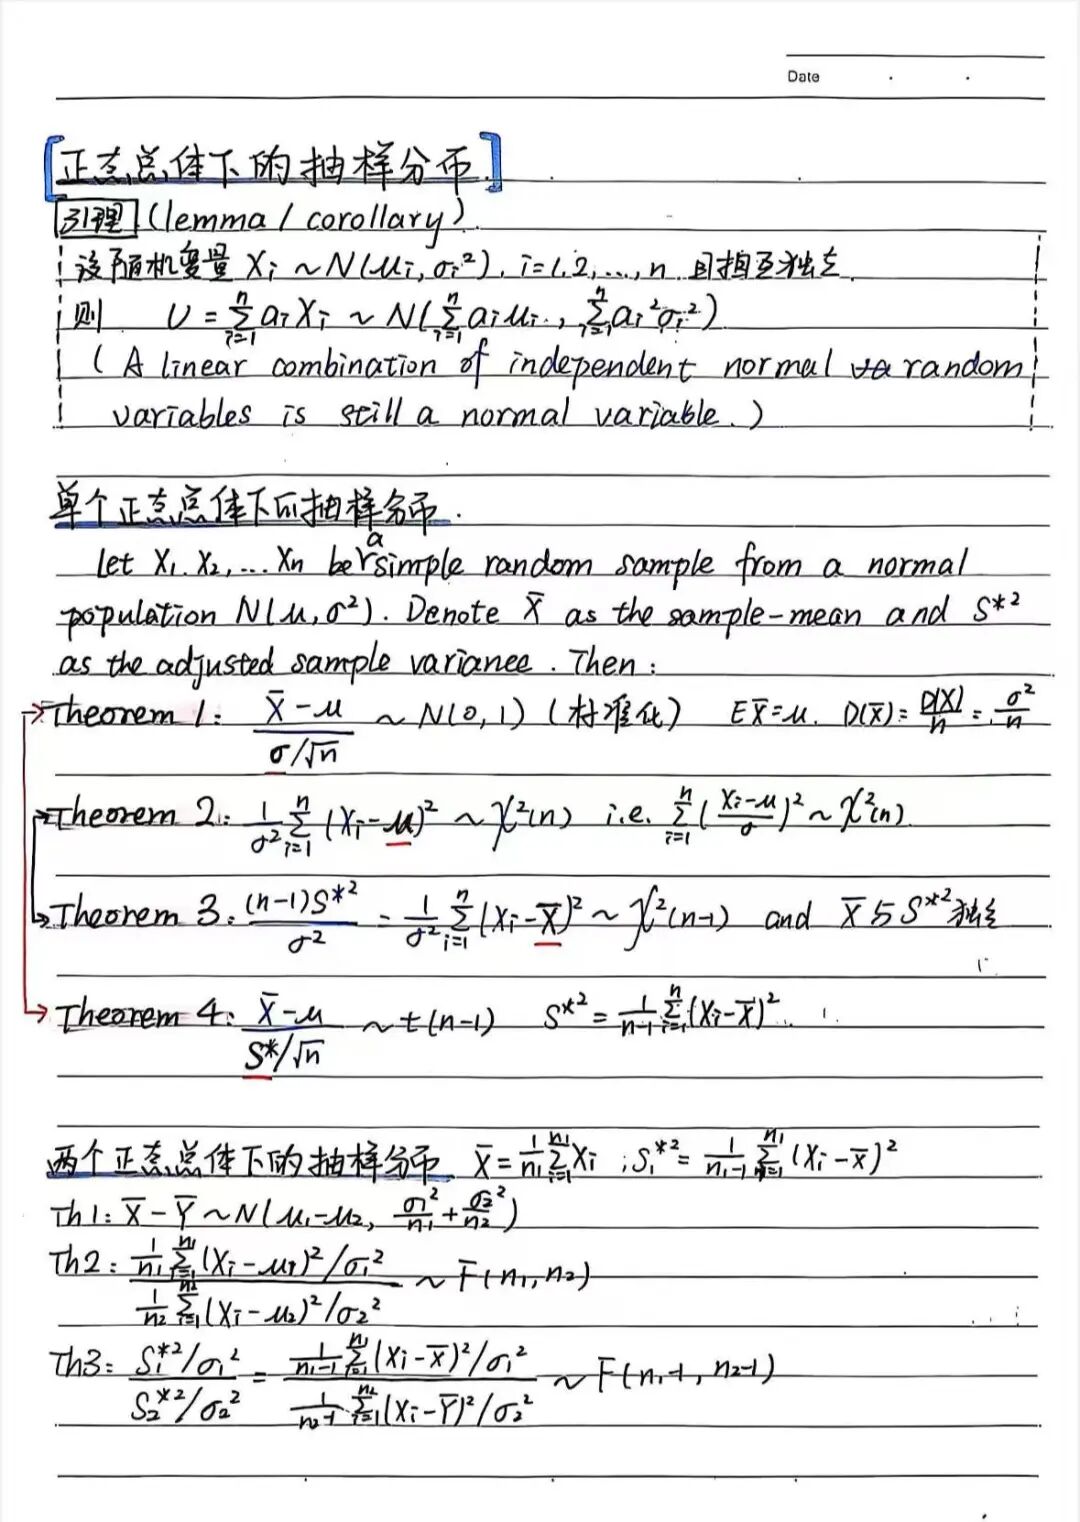 Date
[正态总体下的抽样分布]
引理 (lemma / corollary)
设随机变量 Xi ~ N(μi, σi²), i=1,2,...,n 且相互独立
则 U = Σ_{i=1}^{n} aiXi ~ N(Σ_{i=1}^{n} aiμi, Σ_{i=1}^{n} ai²σi²)
(A linear combination of independent normal va random
variables is still a normal variable.)
单个正态总体下的抽样分布.
Let X1. X2, ... Xn be a simple random sample from a normal
population N(μ, σ²). Denote X̄ as the sample-mean and S*²
as the adjusted sample variance. Then:
Theorem 1: (X̄-μ)/(σ/√n) ~ N(0,1) (标准化) EX̄=μ. D(X̄)=D(X)/n=σ²/n
Theorem 2: 1/σ² Σ_{i=1}^{n} (Xi-μ)² ~ χ²(n) i.e. Σ_{i=1}^{n} ((Xi-μ)/σ)² ~ χ²(n)
Theorem 3: (n-1)S*²/σ² = 1/σ² Σ_{i=1}^{n} (Xi-X̄)² ~ χ²(n-1) and X̄与S*²独立
Theorem 4: (X̄-μ)/(S*/√n) ~ t(n-1) S*² = 1/(n-1) Σ_{i=1}^{n} (Xi-X̄)²
两个正态总体下的抽样分布 X̄ = 1/n1 Σ_{i=1}^{n1} Xi ; S1*² = 1/(n1-1) Σ_{i=1}^{n1} (Xi-X̄)²
Th1: X̄-Ȳ ~ N(μ1-μ2, σ1²/n1+σ2²/n2)
Th2: (1/n1 Σ_{i=1}^{n1} (Xi-μ1)²/σ1²)/(1/n2 Σ_{i=1}^{n2} (Xi-μ2)²/σ2²) ~ F(n1, n2)
Th3: (S1*²/σ1²)/(S2*²/σ2²) = (1/(n1-1) Σ_{i=1}^{n1} (Xi-X̄)²/σ1²)/(1/(n2-1) Σ_{i=1}^{n2} (Xi-Ȳ)²/σ2²) ~ F(n1-1, n2-1)